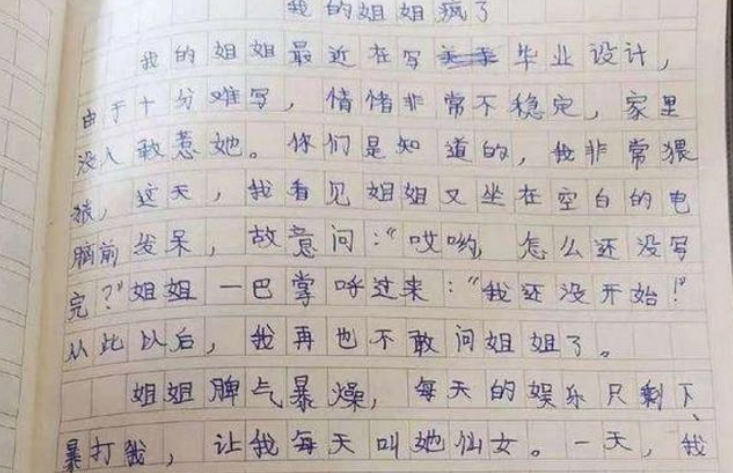 我的姐姐疯了
我的姐姐最近在写毕业设计，
由于十分难写，情绪非常不稳定，家里
没人敢惹她。你们是知道的，我非常猥
琐，这天，我看见姐姐又坐在空白的电
脑前发呆，故意问："哎哟，怎么还没写
完？"姐姐一巴掌呼过来："我还没开始！"
从此以后，我再也不敢问姐姐了。
姐姐脾气暴燥，每天的娱乐只剩下
暴打我，让我每天叫她仙女。一天，我